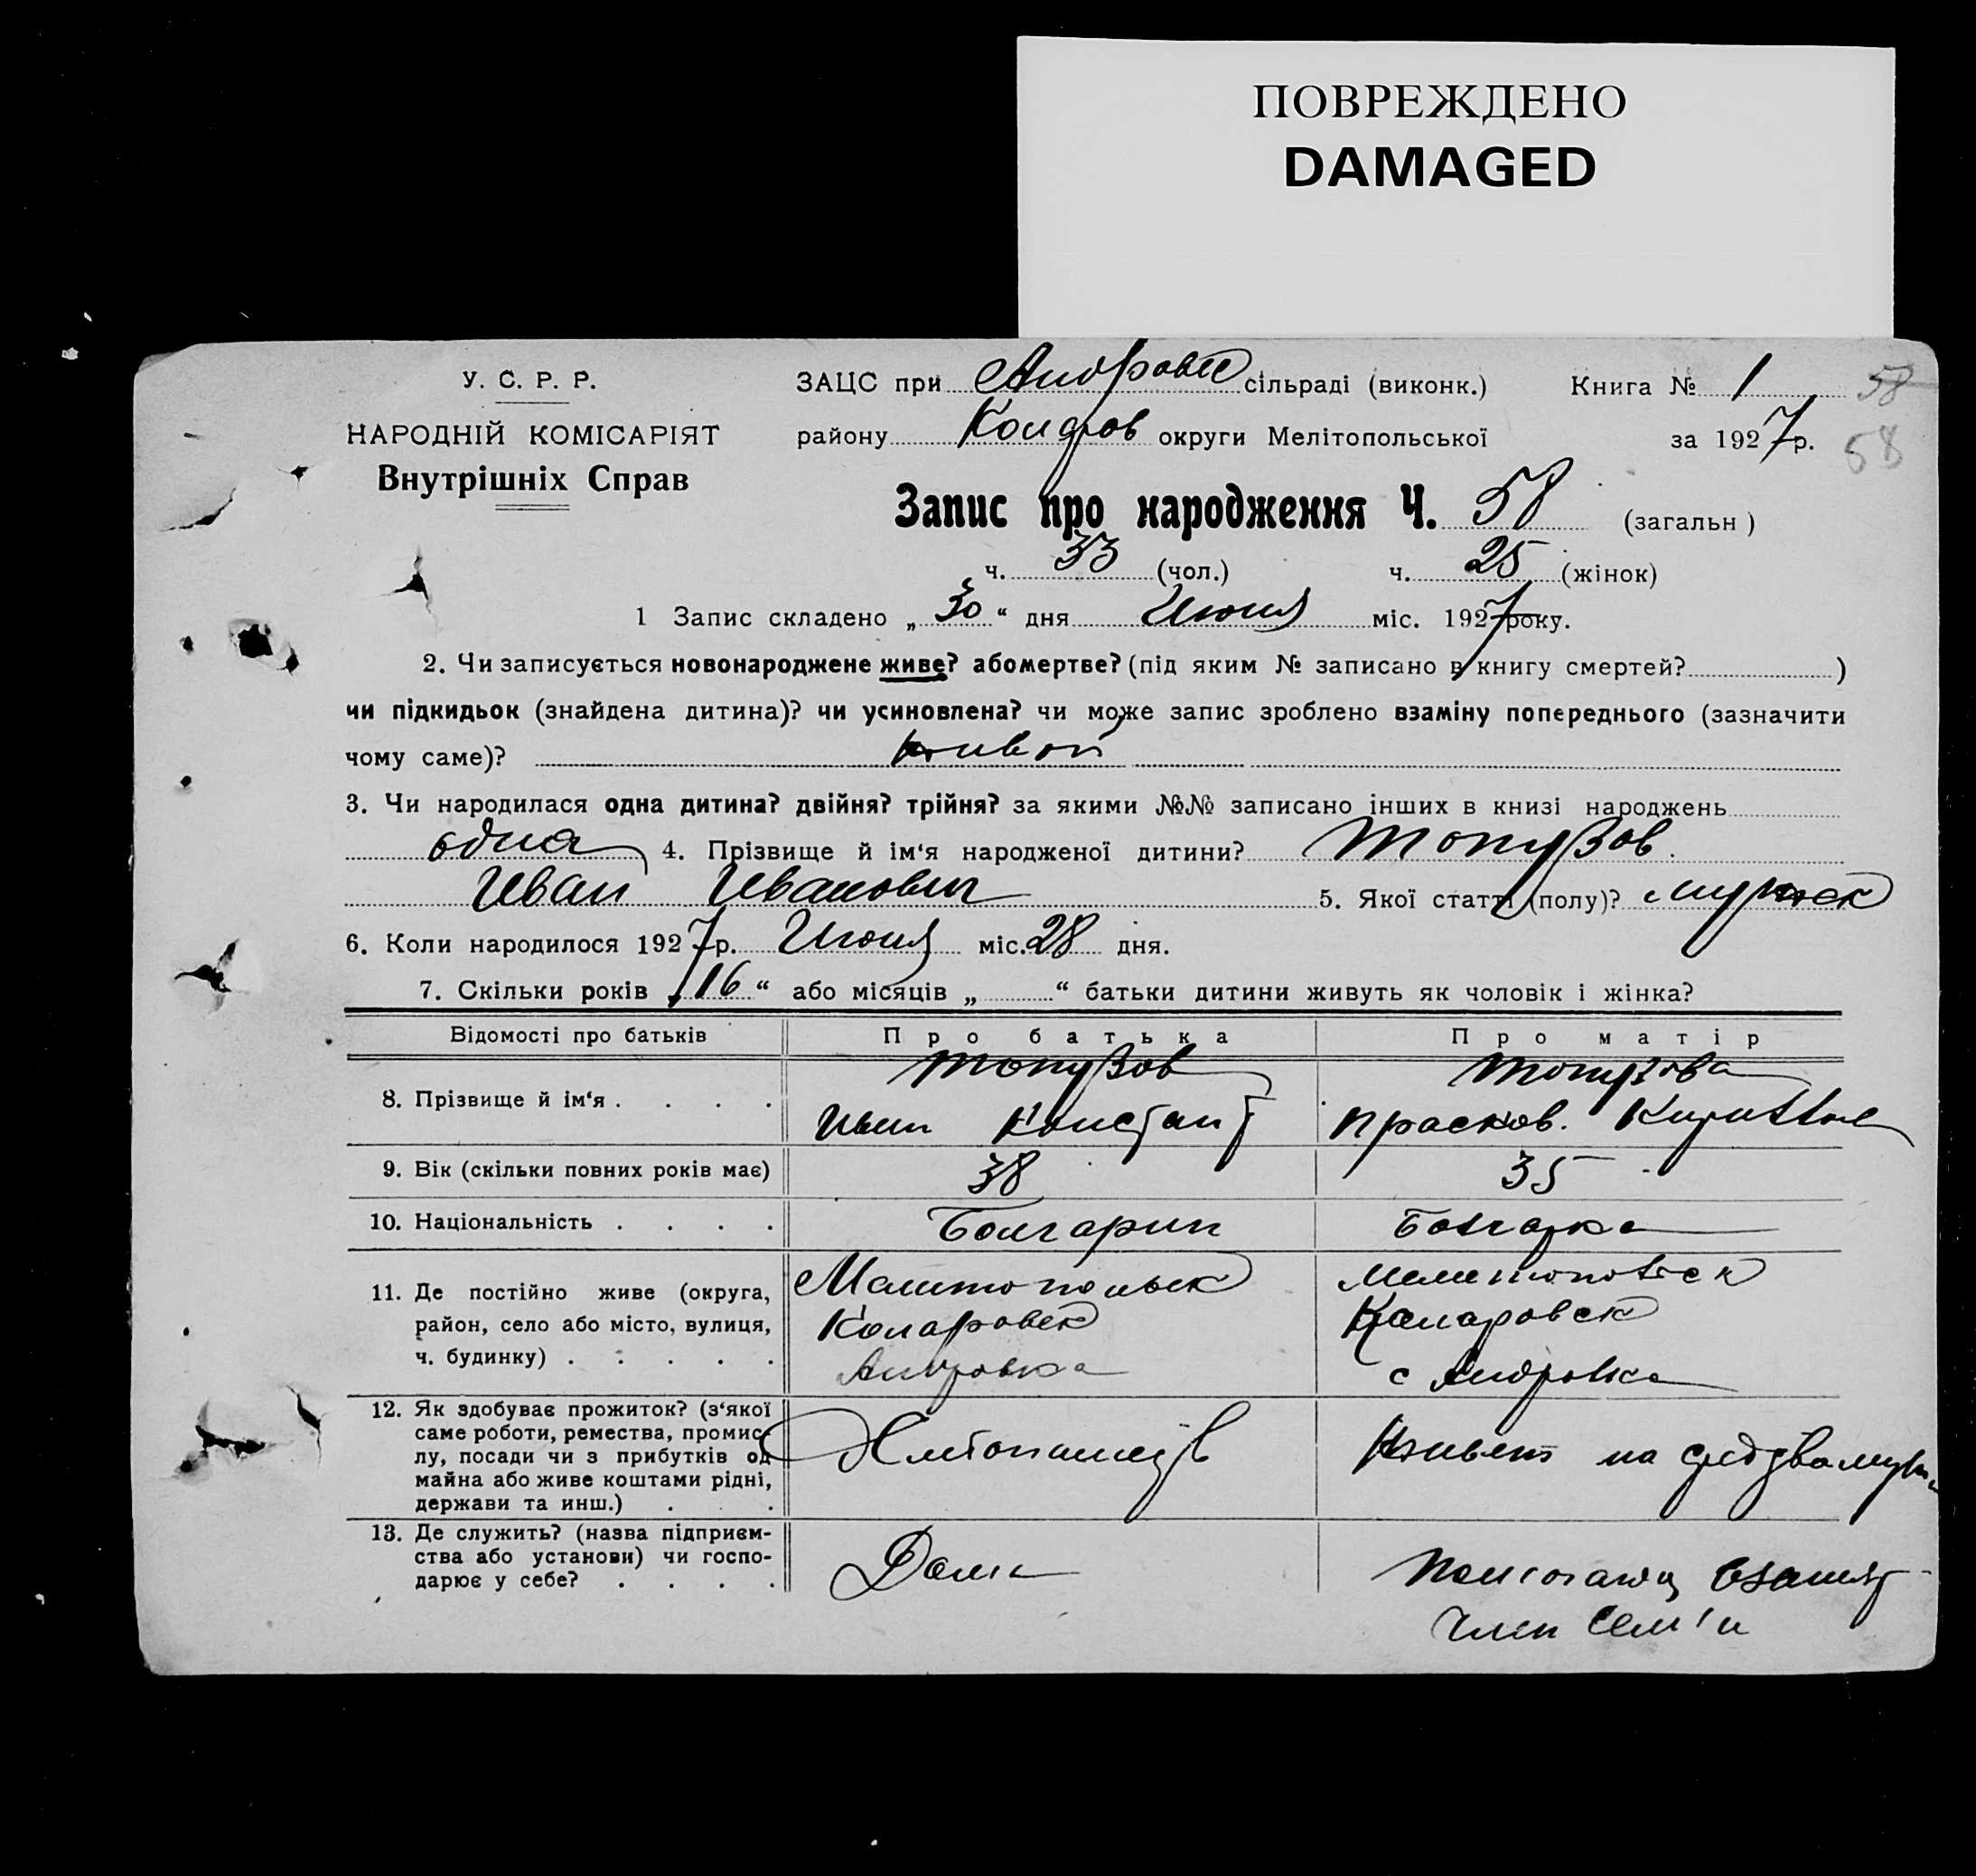 ПОВРЕЖДЕНО
DAMAGED
У. С. Р. Р.
НАРОДНІЙ КОМІСАРІЯТ
Внутрішніх Справ
ЗАЦС при Андровск сільраді (виконк.) Книга № 1 58
району округи Мелітопольської за 1927 р. 58
Запис про народження Ч. 58 (загальн)
ч. 33 (чол.) ч. 25 (жінок)
1 Запис складено „30“ дня Июня міс. 1927 року.
2. Чи записується новонароджене живе? або мертве? (під яким № записано в книгу смертей? )
чи підкидьок (знайдена дитина)? чи усиновлена? чи може запис зроблено взаміну попереднього (зазначити
чому саме)? живой
3. Чи народилася одна дитина? двійня? трійня? за якими №№ записано інших в книзі народжень
одна 4. Прізвище й ім‘я народженої дитини? Топузов
Иван Иванович 5. Якої статті (полу)? мужск
6. Коли народилося 1927 р. Июня міс. 28 дня.
7. Скільки років „16“ або місяців „ “ батьки дитини живуть як чоловік і жінка?
Відомості про батьків Про батька Про матір
8. Прізвище й ім‘я . . . . Топузов Топузова
Иван Констант Прасков.
9. Вік (скільки повних років має) 38 35
10. Національність . . . . Болгарин Болгарка
11. Де постійно живе (округа, Мелитопольск Мелитопольск
район, село або місто, вулиця, Коларовск Каларовск
ч. будинку) . . . . . Андровка с Андровка
12. Як здобуває прожиток? (з‘якої
саме роботи, ремества, промис-
лу, посади чи з прибутків од Хлебопашеств Живет на средства мужа
майна або живе коштами рідні,
держави та инш.) . . .
13. Де служить? (назва підприєм-
ства або установи) чи госпо- Дома Помогающ
дарює у себе? . . . . член семьи